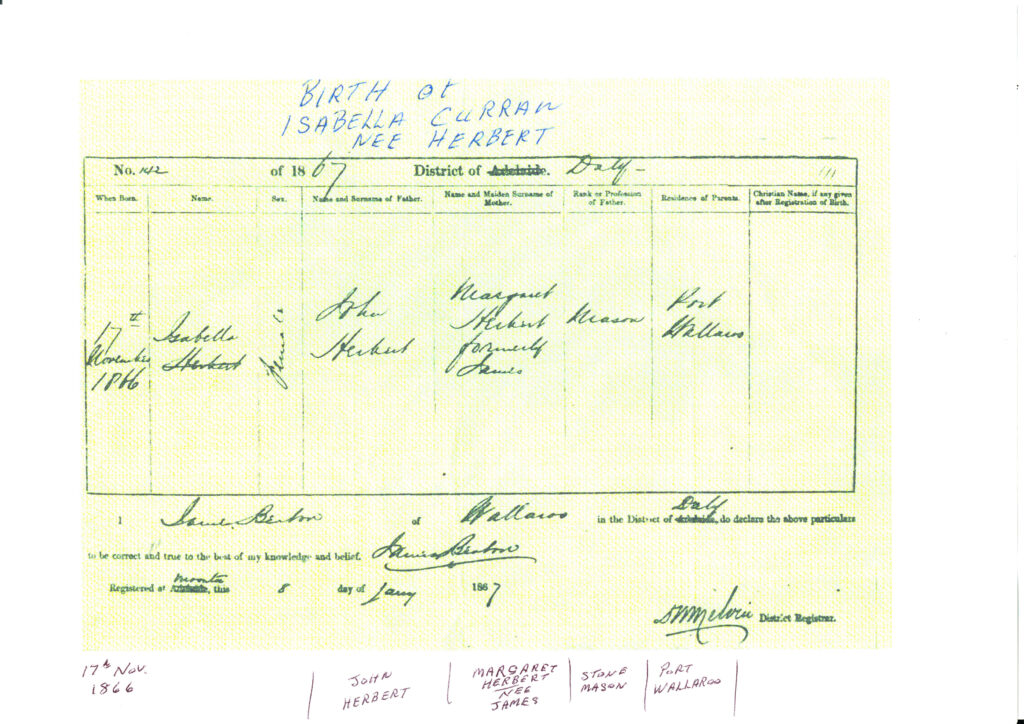 BIRTH OF
ISABELLA CURRAN
NEE HERBERT
No. 142 of 1867 District of Adelaide. Daly
When Born. Name. Sex. Name and Surname of Father. Name and Maiden Surname of Mother. Rank or Profession of Father. Residence of Parents. Christian Name, if any given after Registration of Birth.
17th
November
1866
Isabella
Herbert
Female
John
Herbert
Margaret
Herbert
formerly
James
Mason
Port
Wallaroo
Daly
I James Benbow of Wallaroo in the District of Adelaide, do declare the above particulars
to be correct and true to the best of my knowledge and belief. James Benbow
Moonta
Registered at Adelaide, this 8 day of Jany 1867
Melvin District Registrar.
17th Nov.
1866
JOHN
HERBERT
MARGARET
HERBERT
NEE
JAMES
STONE
MASON
PORT
WALLAROO